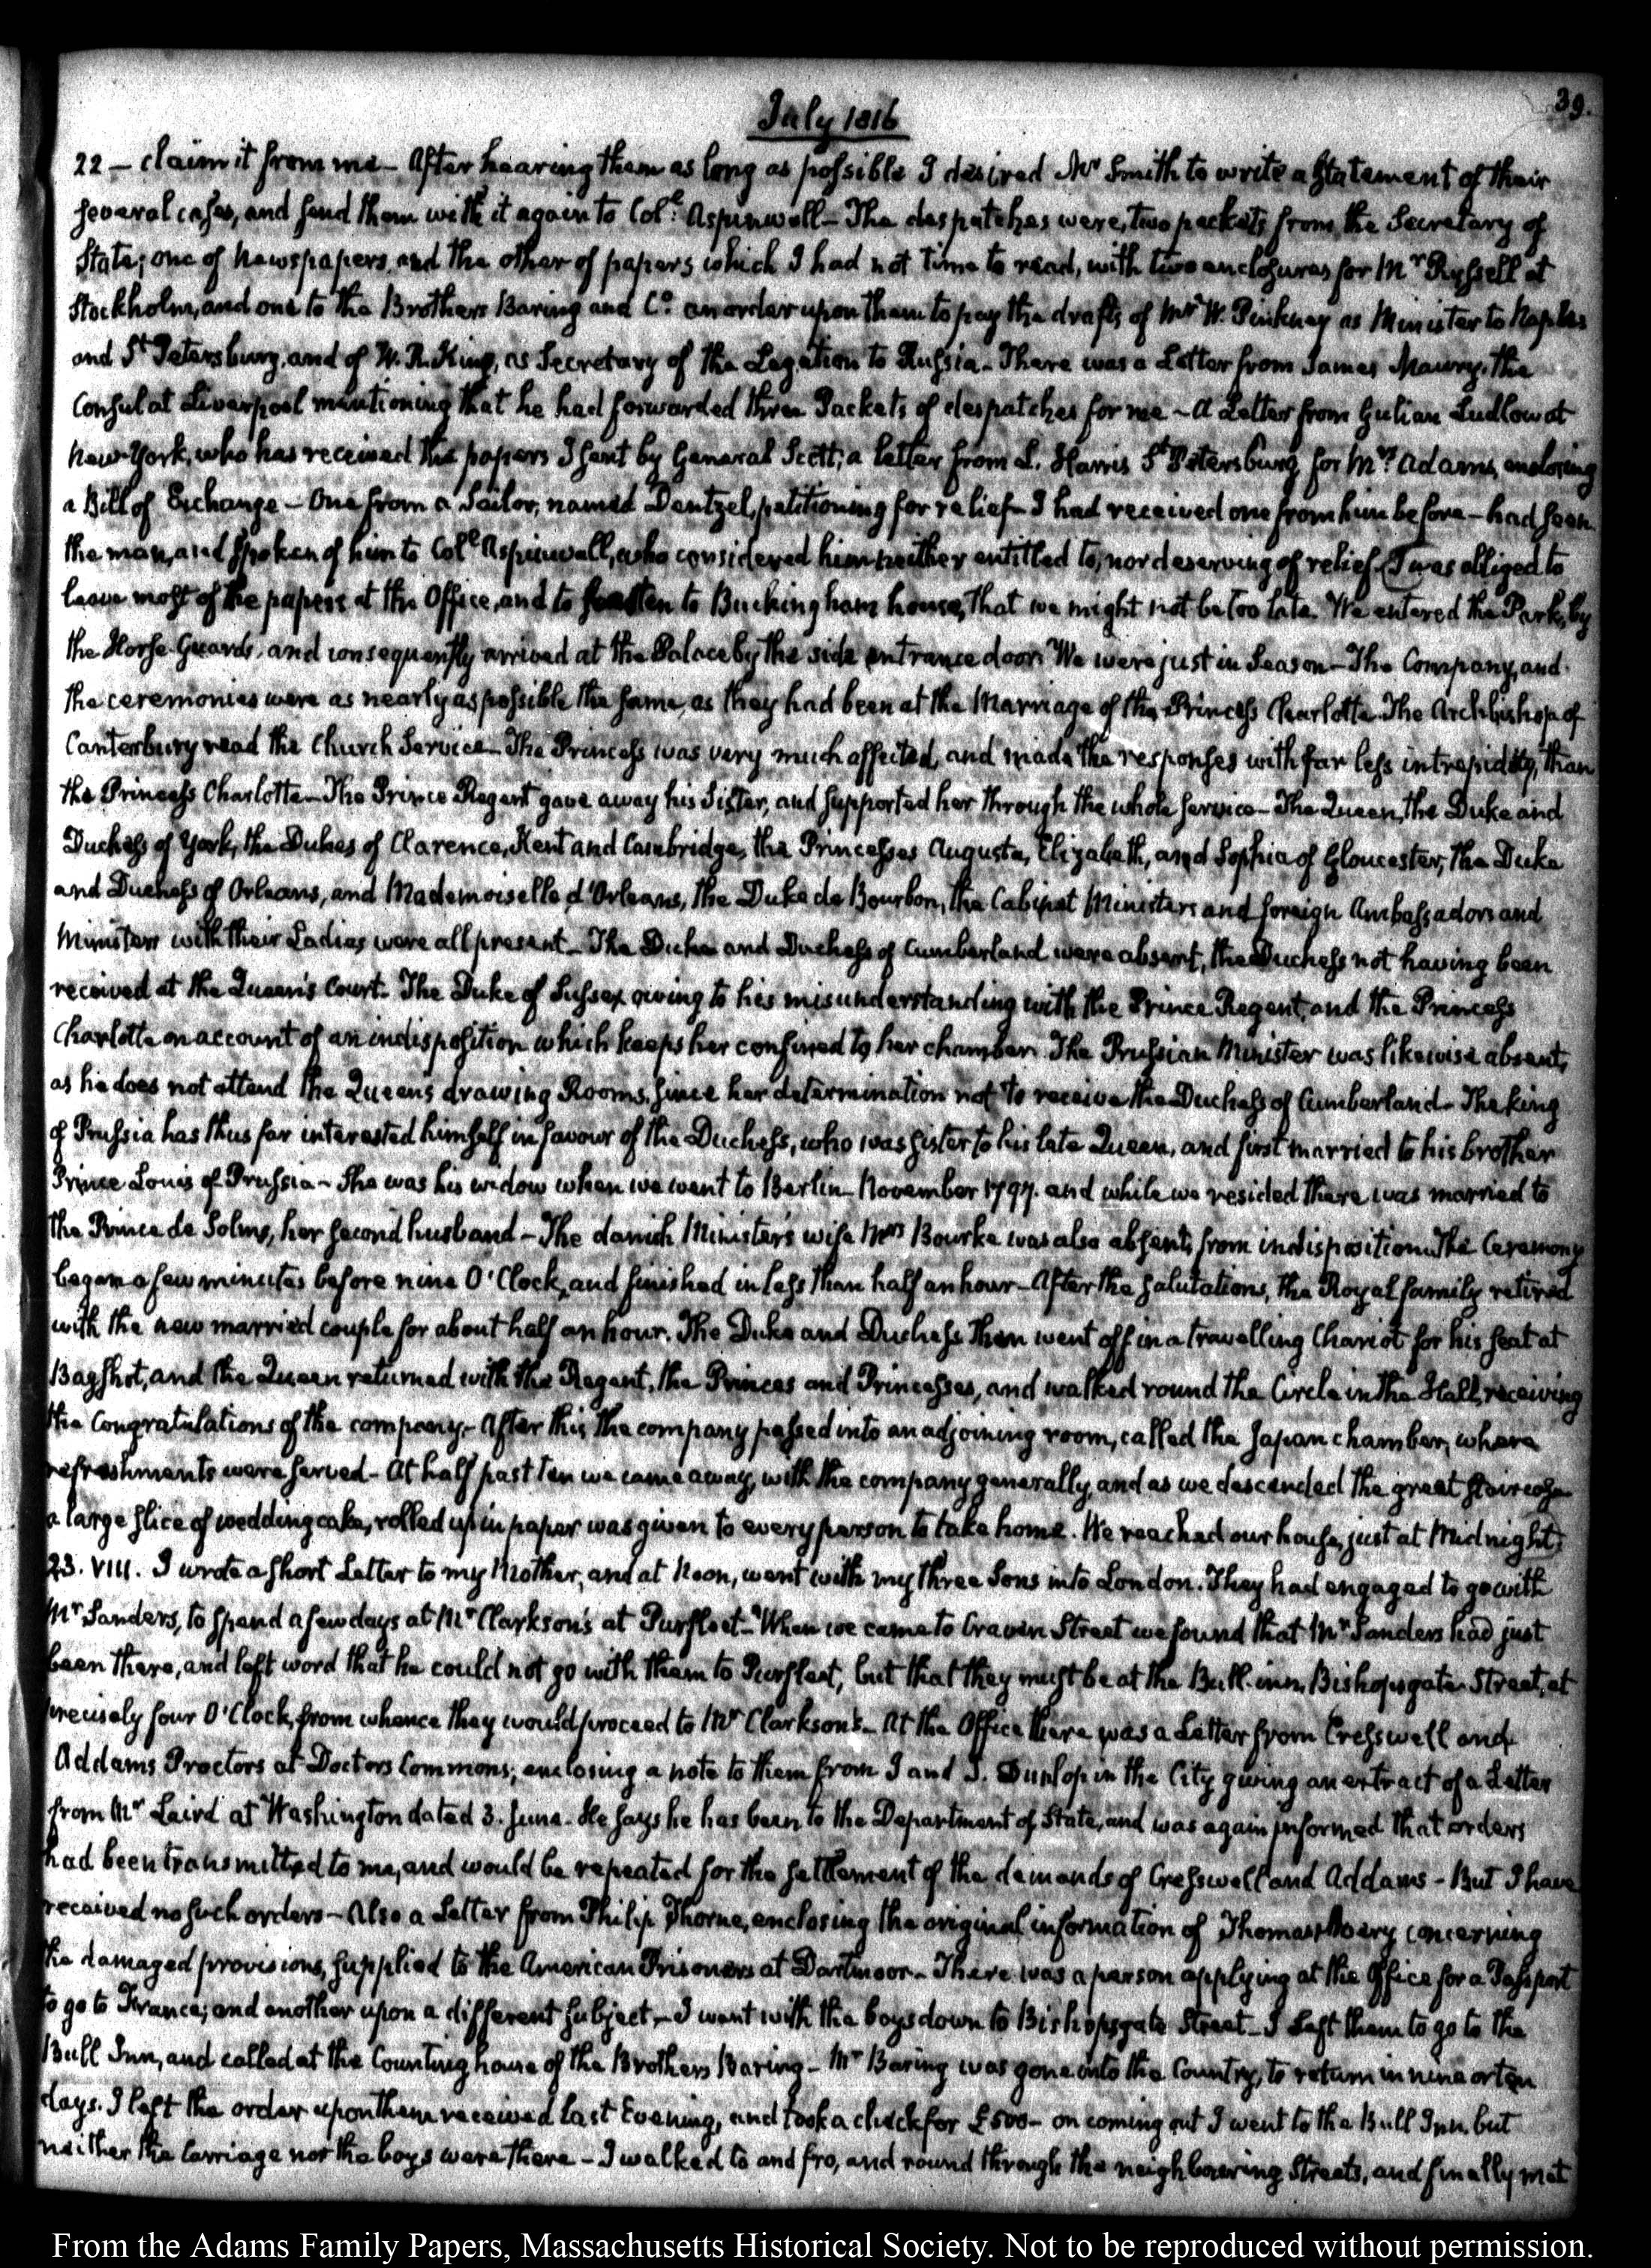 39.
July 1816
22 — claim it from me — After hearing them as long as possible I desired Mr. Smith to write a Statement of their
several cases, and send them with it again to Coll. Aspinwall — The despatches were, two packets from the Secretary of
State; one of Newspapers, and the other of papers which I had not time to read, with two enclosures for Mr Russell at
Stockholm, and one to the Brothers Baring and Co. an order upon them to pay the drafts of Mr W. Pinkney as Minister to Naples
and St Petersburg, and of W. R. King, as Secretary of the Legation to Russia — There was a Letter from James Maury, the
Consul at Liverpool mentioning that he had forwarded three Packets of despatches for me — A Letter from Gulian Ludlow at
New-York, who has received the papers I sent by General Scott; a letter from L. Harris St Petersburg for Mrs Adams, enclosing
a Bill of Exchange — One from a Sailor, named Dentzel, petitioning for relief — I had received one from him before — had seen
the man, and spoken of him to Coll Aspinwall, who considered him neither entitled to, nor deserving of relief. I was obliged to
leave most of the papers at the Office, and to hasten to Buckingham house, that we might not be too late. We entered the Park, by
the Horse-Guards, and consequently arrived at the Palace by the side entrance door. We were just in Season — The Company, and
the ceremonies were as nearly as possible the same, as they had been at the Marriage of the Princess Charlotte. The Archbishop of
Canterbury read the Church Service — The Princess was very much affected, and made the responses with far less intrepidity, than
the Princess Charlotte — The Prince Regent gave away his Sister, and supported her through the whole service — The Queen, the Duke and
Duchess of York, the Dukes of Clarence, Kent and Cambridge, the Princesses Augusta, Elizabeth, and Sophia of Gloucester, the Duke
and Duchess of Orleans, and Mademoiselle d'Orleans, the Duke de Bourbon, the Cabinet Ministers and foreign Ambassadors and
Ministers with their Ladies were all present — The Duke and Duchess of Cumberland were absent, the Duchess not having been
received at the Queen's Court. The Duke of Sussex owing to his misunderstanding with the Prince Regent, and the Princess
Charlotte on account of an indisposition which keeps her confined to her chamber. The Prussian Minister was likewise absent,
as he does not attend the Queens drawing Rooms, since her determination not to receive the Duchess of Cumberland — The king
of Prussia has thus far interested himself in favour of the Duchess, who was sister to his late Queen, and first married to his brother
Prince Louis of Prussia — She was his widow when we went to Berlin November 1797. and while we resided there was married to
the Prince de Solms, her second husband — The danish Minister's wife Mrs Bourke was also absent, from indisposition. The Ceremony
began a few minutes before nine O'Clock, and finished in less than half an hour — After the salutations, the Royal family retired
with the new married couple for about half an hour. The Duke and Duchess then went off in a travelling Chariot for his seat at
Bagshot, and the Queen returned with the Regent, the Princes and Princesses, and walked round the Circle in the Hall, receiving
the Congratulations of the company — After this the company passed into an adjoining room, called the Japan chamber, where
refreshments were served — At half past ten we came away, with the company generally, and as we descended the great staircase
a large slice of wedding cake, rolled up in paper was given to every person to take home. We reached our house, just at Midnight.
23. VIII. I wrote a short Letter to my Mother, and at Noon, went with my three Sons into London. They had engaged to go with
Mr Sanders, to spend a few days at Mr Clarkson's at Purfleet — When we came to Craven Street we found that Mr Sanders had just
been there, and left word that he could not go with them to Purfleet, but that they must be at the Bull-inn, Bishopsgate Street, at
precisely four O'Clock, from whence they would proceed to Mr Clarkson's — At the Office there was a Letter from Cresswell and
Addams Proctors at Doctors Commons; enclosing a note to them from J and J. Dunlop in the City giving an extract of a Letter
from Mr Laird at Washington dated 3. June — He says he has been to the Department of State, and was again informed that orders
had been transmitted to me, and would be repeated for the settlement of the demands of Cresswell and Addams — But I have
received no such orders — Also a Letter from Philip Thorne, enclosing the original information of Thomas concerning
the damaged provisions, supplied to the American Prisoners at Dartmoor — There was a person applying at the Office for a Passport
to go to France; and another upon a different subject — I went with the boys down to Bishopsgate Street — I left them to go to the
Bull Inn, and called at the Counting house of the Brothers Baring — Mr Baring was gone into the Country, to return in nine or ten
days. I left the order upon them received last Evening, and took a check for £500 — on coming out I went to the Bull Inn, but
neither the Carriage nor the boys were there — I walked to and fro, and round through the neighbouring Streets, and finally met
From the Adams Family Papers, Massachusetts Historical Society. Not to be reproduced without permission.